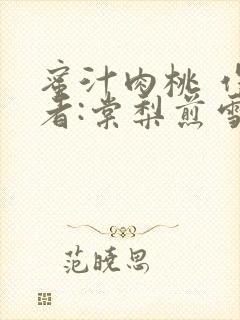 蜜汁肉桃
者:棠梨煎雪
范晓思